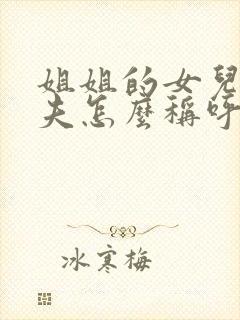 姐姐的女兒
夫怎麼稱呼
冰寒梅